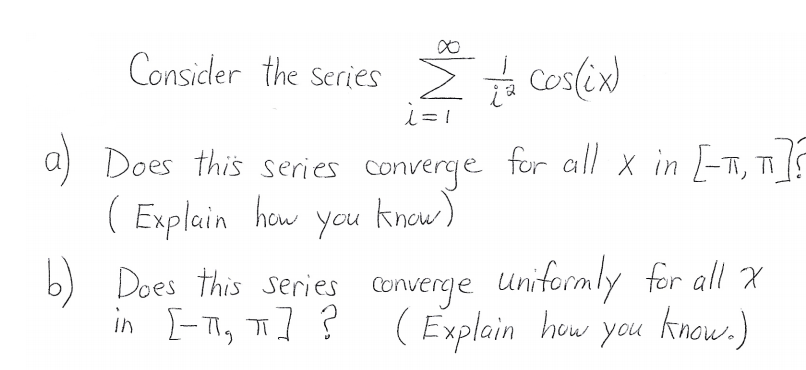 Consider the series ∞ Σ i=1 1/i² cos(ix)
a) Does this series converge for all x in [-π, π]?
( Explain how you know)
b) Does this series converge uniformly for all x
in [-π, π] ? ( Explain how you know.)